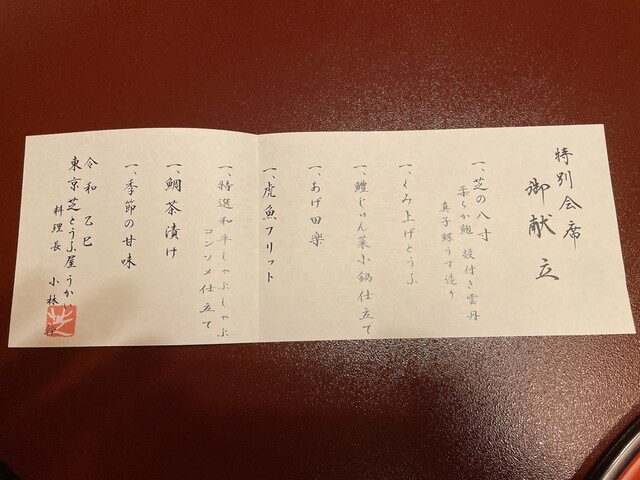 特別会席
御献立
一、芝の八寸
柔らか鮑 殻付き雲丹
真子鰈うす造り
一、くみ上げとうふ
一、鱧じゅん菜小鍋仕立て
一、あげ田楽
一、虎魚フリット
一、特選和牛しゃぶしゃぶ
コンソメ仕立て
一、鯛茶漬け
一、季節の甘味
令和 乙巳
東京芝とうふ屋うかい
料理長 小林